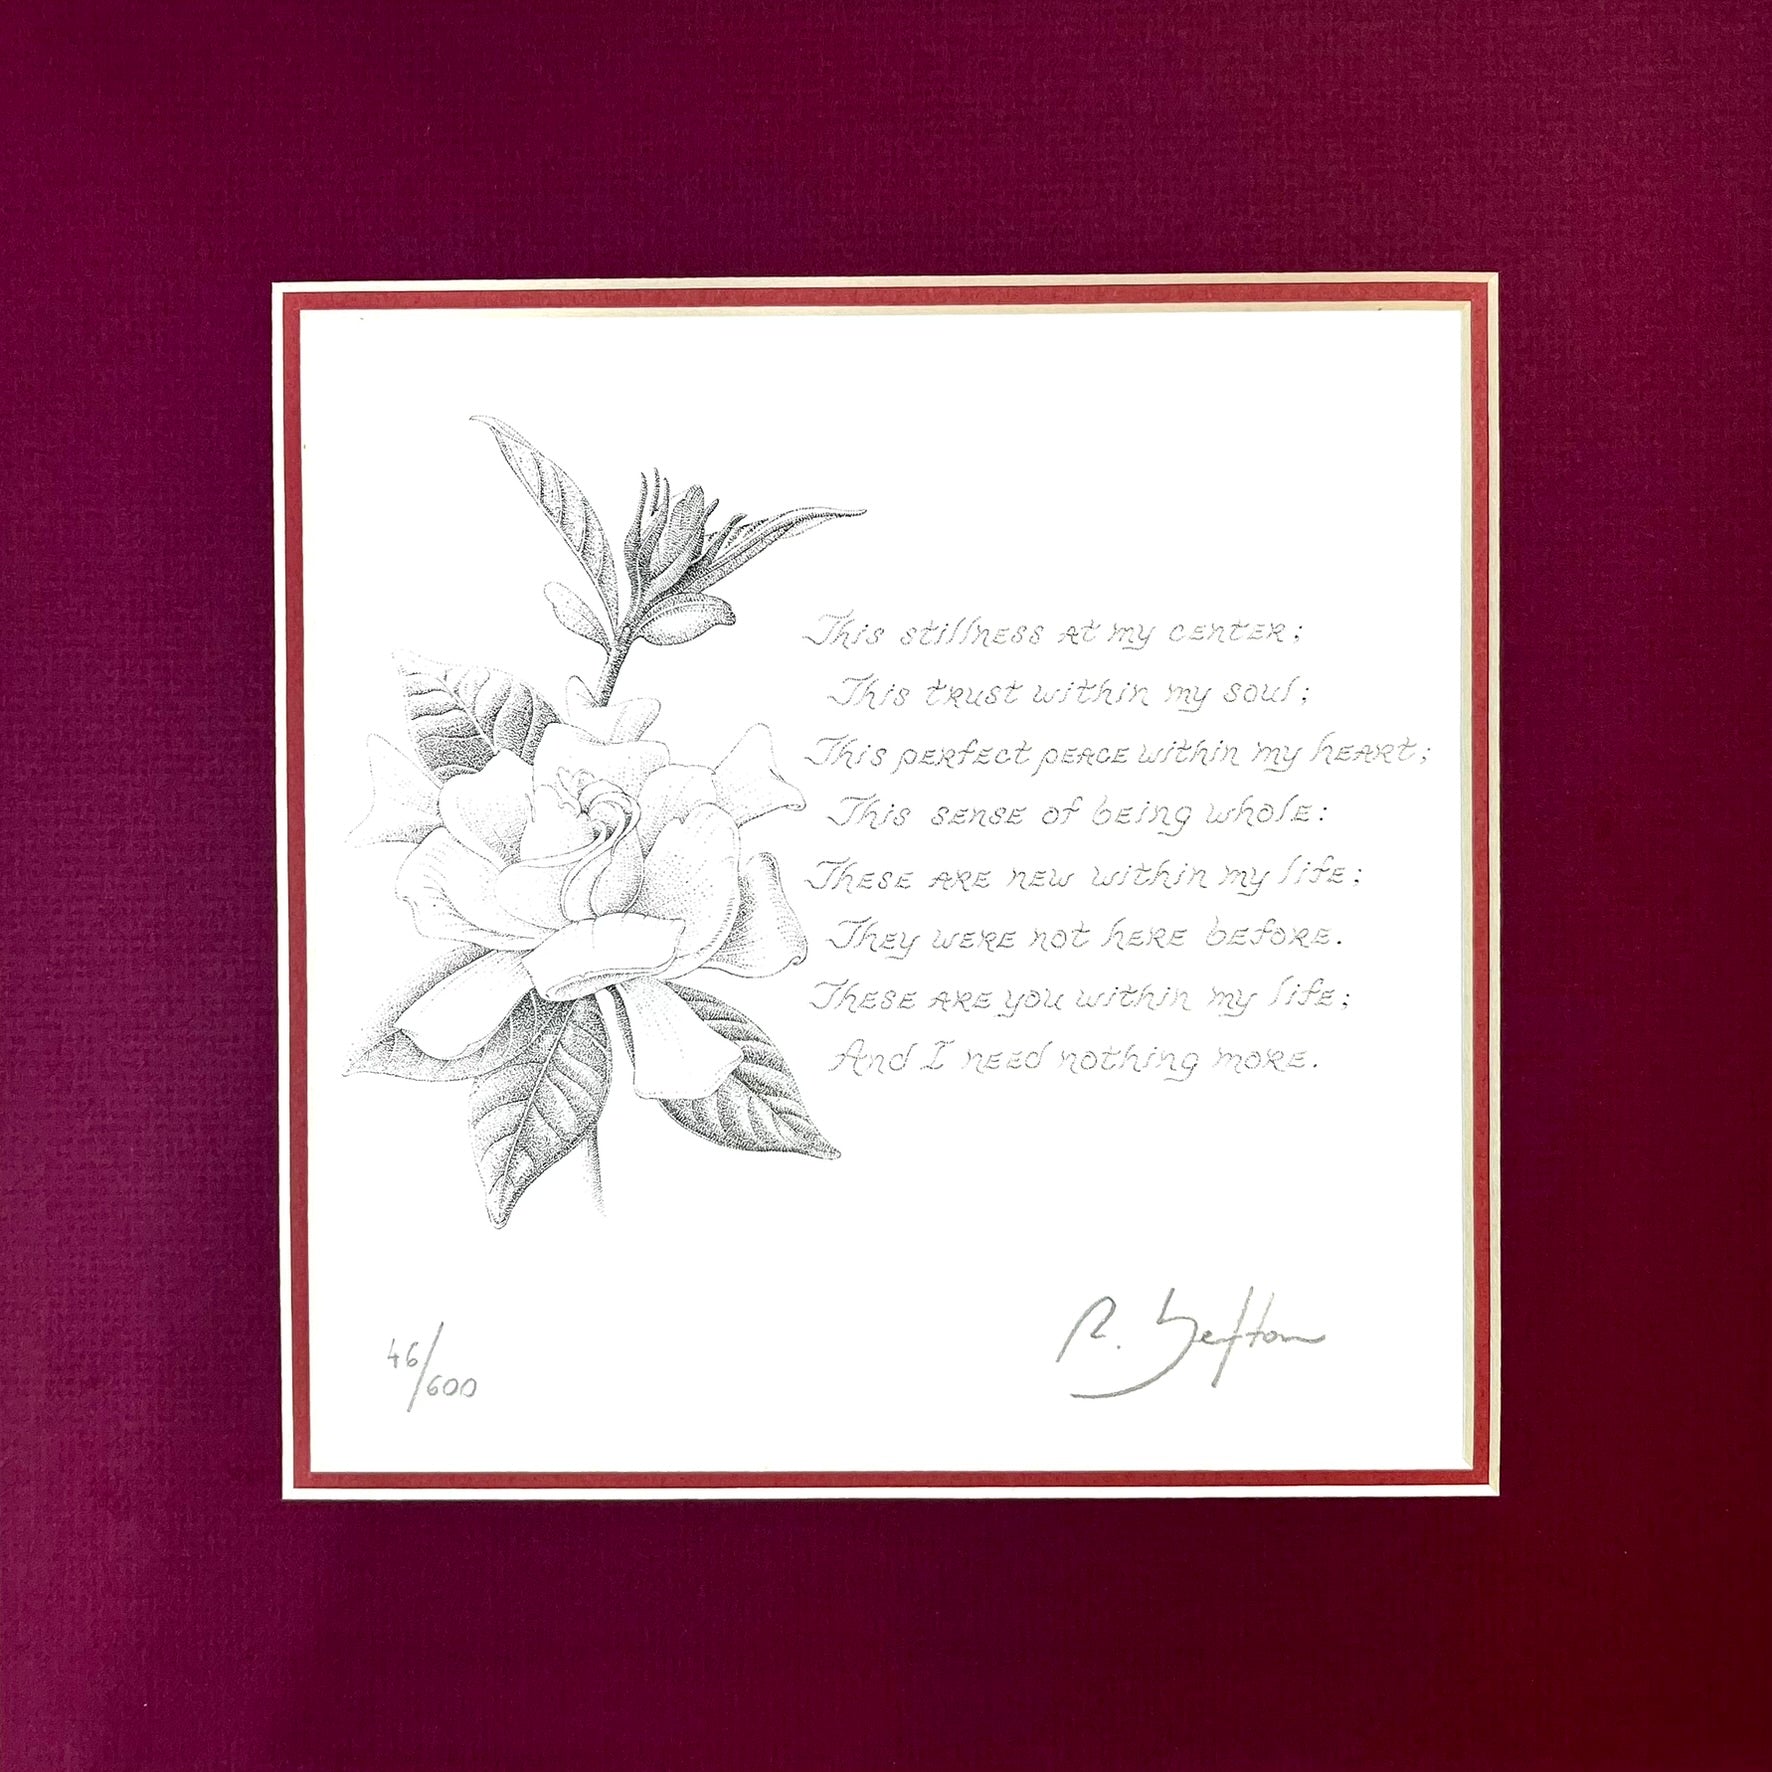 This stillness at my center;
This trust within my soul;
This perfect peace within my heart;
This sense of being whole:
These are new within my life;
They were not here before.
These are you within my life;
And I need nothing more.
46/600
R. Sefton